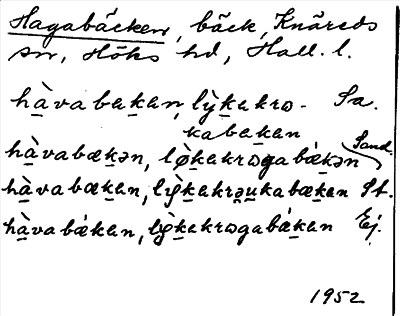 Hagabäcken, bäck, Knäreds
sn, Höks hd, Hall. l.
hàvabakan, lỳkakrω- Sa.
kabakan
hàvabækən, lø̀kakrωgabǽkən Sand.
hàvabækan, lỳkakrəukabækan St.
hàvabákan, lỳkakrωgabákan Ej.
1952